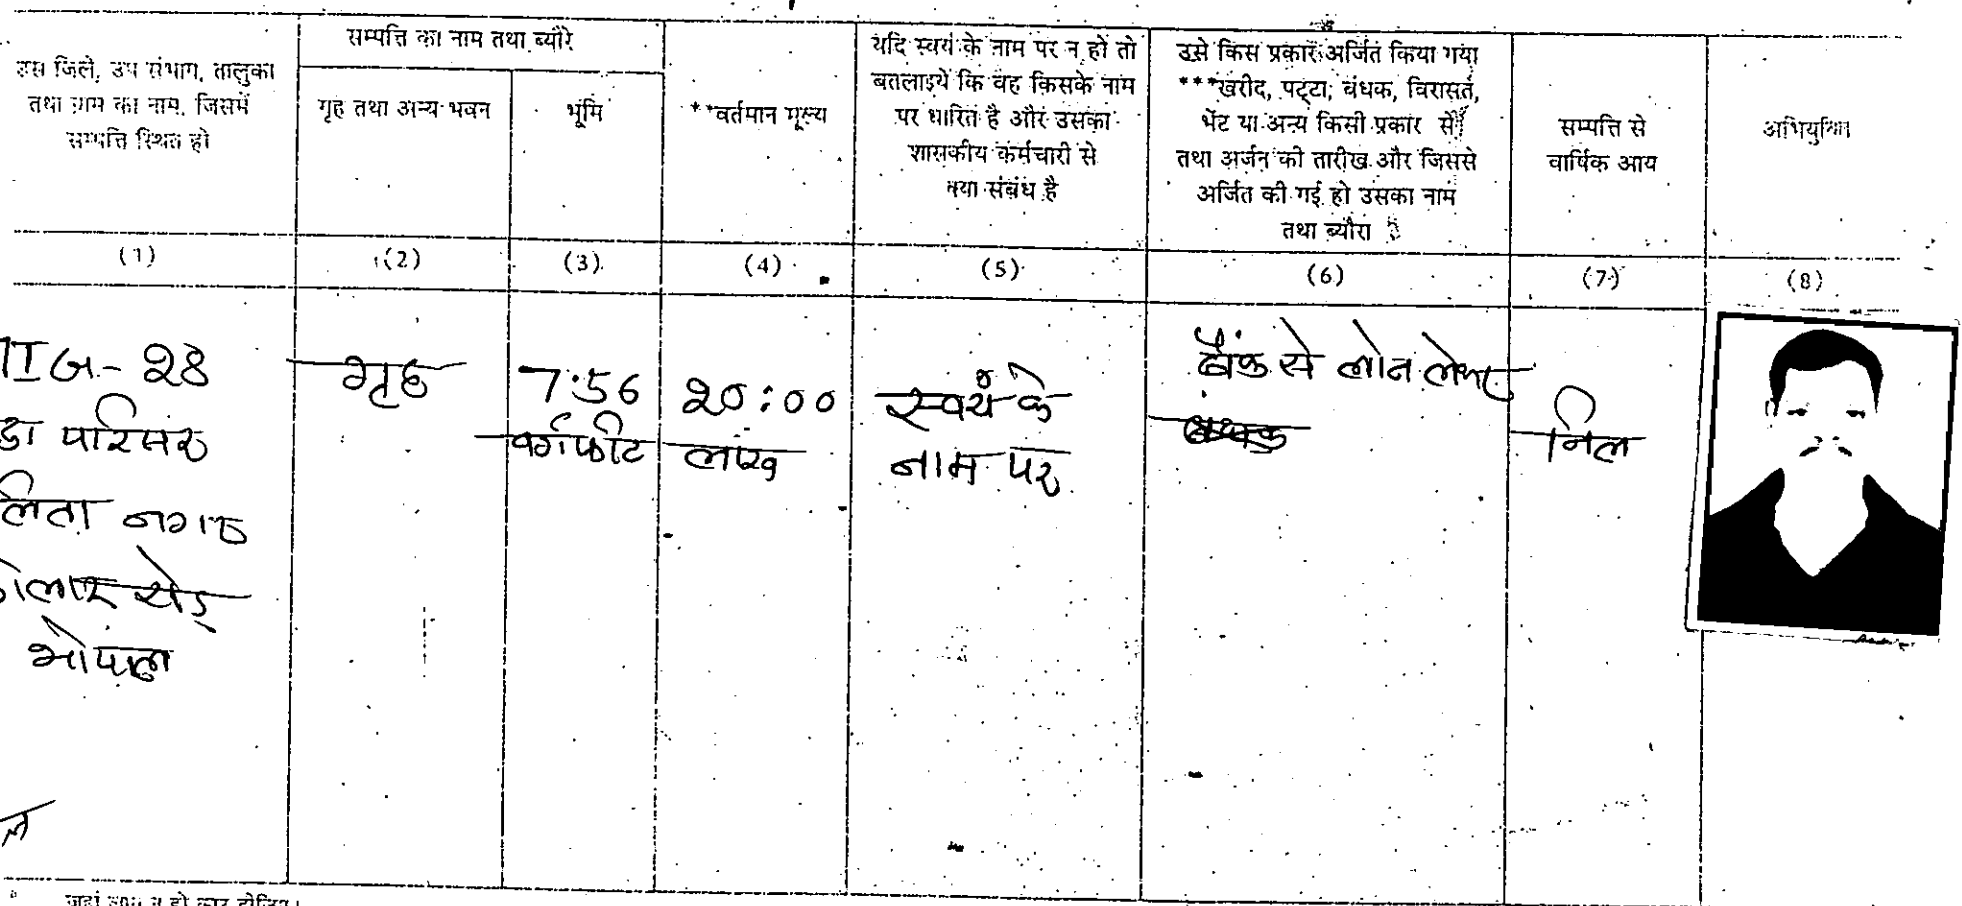 सम्पत्ति का नाम तथा ब्यौरे
उस जिले, उप संभाग, तालुका
तथा ग्राम का नाम, जिसमें
सम्पत्ति स्थित हो
गृह तथा अन्य भवन
भूमि
**वर्तमान मूल्य
यदि स्वयं के नाम पर न हो तो
बतलाइये कि वह किसके नाम
पर धारित है और उसका
शासकीय कर्मचारी से
क्या संबंध है
उसे किस प्रकार अर्जित किया गया
***खरीद, पट्टा, बंधक, विरासत,
भेंट या अन्य किसी प्रकार से
तथा अर्जन की तारीख और जिससे
अर्जित की गई हो उसका नाम
तथा ब्यौरा
सम्पत्ति से
वार्षिक आय
अभियुक्ति
(1) (2) (3) (4) (5) (6) (7) (8)
IG-28
परिसर
लिता नगर
कोलार रोड
भोपाल
गृह
7:56
वर्गफीट
20:00
लाख
स्वयं के
नाम पर
बैंक से लोन लेकर
निल
जहां लागू न हो काट दीजिए।